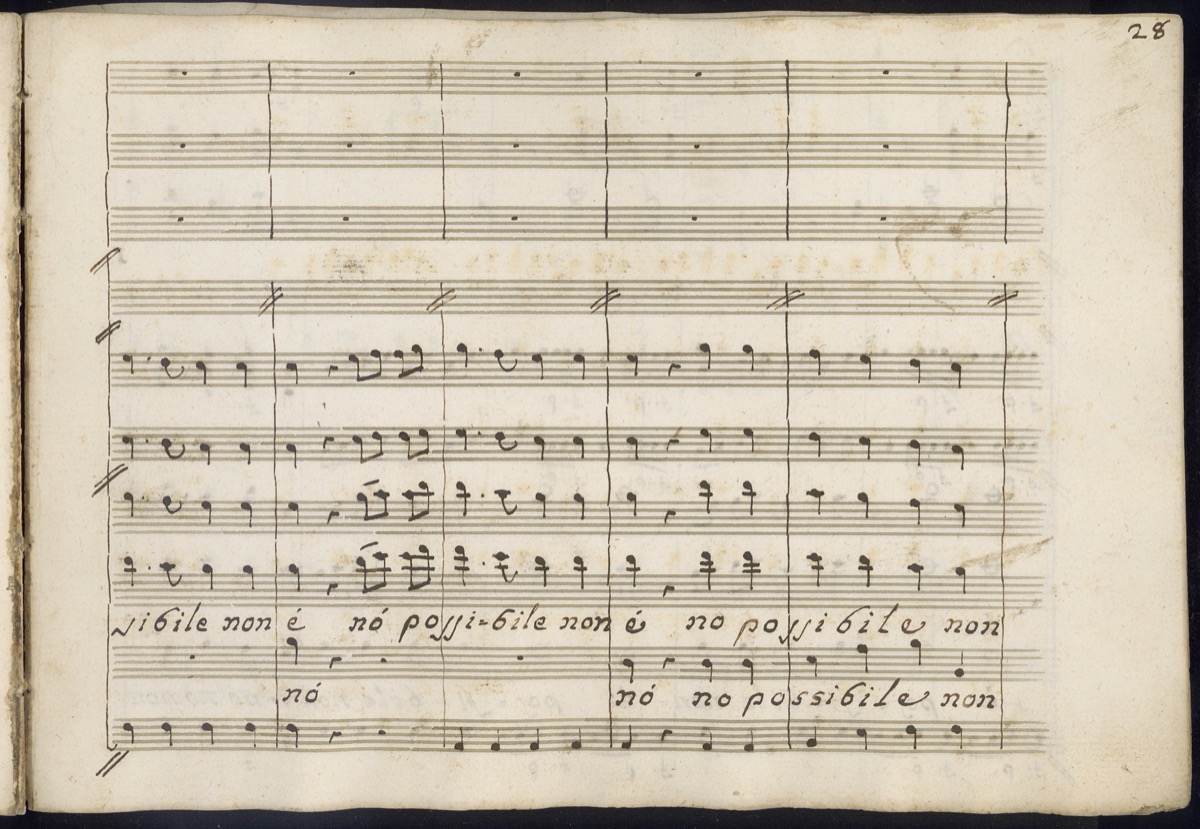 28
sibile non é nó possi=bile non é no possibile non
nó nó no possibile non